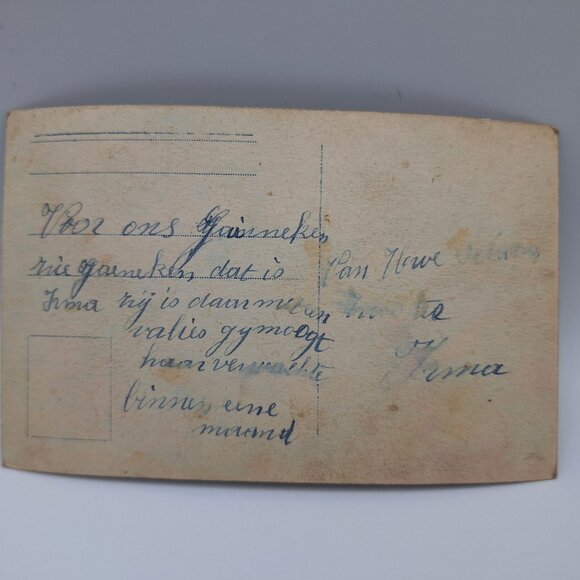 Voor ons Gainneken
zie Gaeneken, dat is
Irma zij is daar met een
valies gy moogt
haar verwachte
binnen eene
maand
Van Uwe
Irma